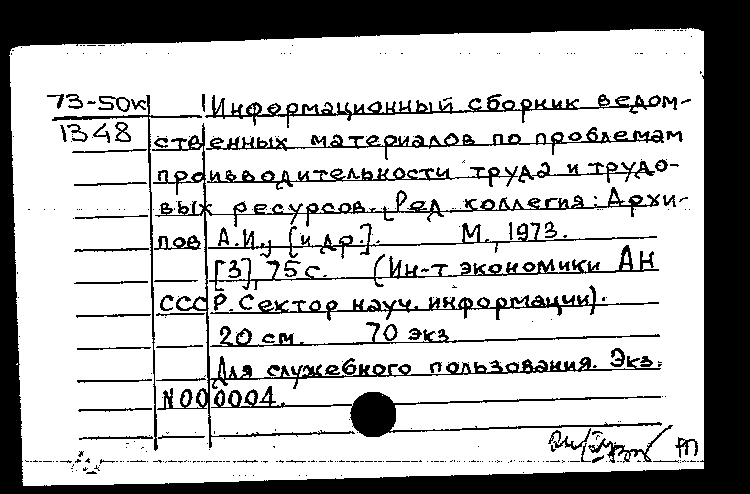 73-50к
1348
Информационный сборник ведом-
ственных материалов по проблемам
производительности труда и трудо-
вых ресурсов. Ред. коллегия: Архи-
пов А.И., [и др.]. М., 1973.
[3], 75 с. (Ин-т экономики АН
СССР. Сектор науч. информации).
20 см. 70 экз.
Для служебного пользования. Экз.
N000004.